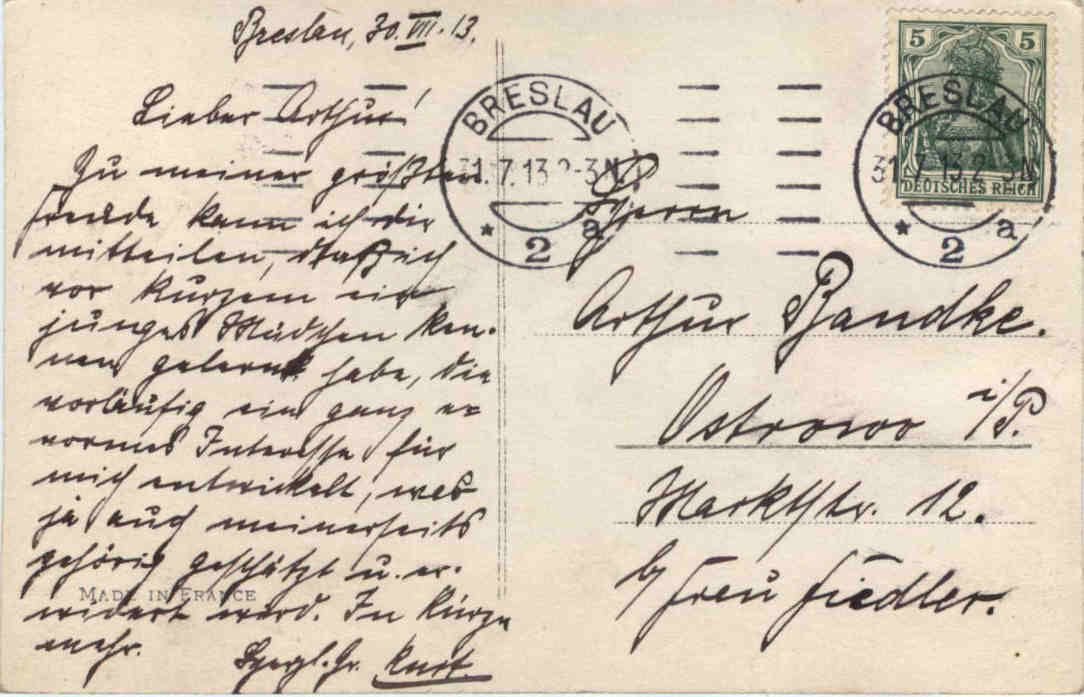 Breslau, 30.VII.13.
Lieber Arthur!
Zu meiner größten
Freude kann ich dir
mitteilen, daß ich
vor kurzem ein
junges Mädchen ken-
nen gelernt habe, die
vorläufig ein ganz e-
normes Interesse für
mich entwickelt, was
ja auch meinerseits
gehörig geschätzt u. er-
widert wird. In Kürze
mehr.
Herzl. Gr. Kurt.
MADE IN FRANCE
BRESLAU
31.7.13 2-3N
* 2 a
5 5
DEUTSCHES REICH
BRESLAU
31.7.13 2-3N
* 2 a
Herrn
Arthur Bandke.
Ostrowo i/P.
Marktstr. 12.
b/ Frau Fiedler.